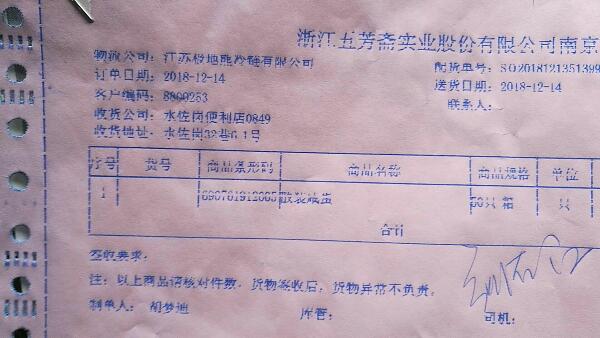 浙江五芳斋实业股份有限公司南京
物流公司: 江苏极地熊冷链有限公司
配货单号: SO2018121351399
订单日期: 2018-12-14
送货日期: 2018-12-14
客户编码: 8800253
联系人:
收货公司: 水佐岗便利店0849
收货地址: 水佐岗32巷6-1号
序号 货号 商品条形码 商品名称 商品规格 单位
1 690761912085 散装咸蛋 50只/箱 只
合计
签收要求:
注: 以上商品请核对件数, 货物签收后, 货物异常不负责。
制单人: 胡梦迪 库管: 司机: